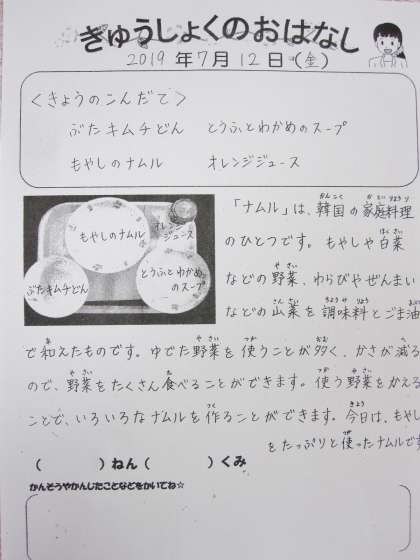 きゅうしょくのおはなし
2019年7月12日(金)
<きょうのこんだて>
ぶたキムチどん とうふとわかめのスープ
もやしのナムル オレンジジュース
もやしのナムル
オレンジ
ジュース
ぶたキムチどん
とうふとわかめ
のスープ
「ナムル」は、韓国の家庭料理
のひとつです。もやしや白菜
などの野菜、わらびやぜんまい
などの山菜を調味料とごま油
で和えたものです。ゆでた野菜を使うことが多く、かさが減る
ので、野菜をたくさん食べることができます。使う野菜をかえる
ことで、いろいろなナムルを作ることができます。今日は、もやし
をたっぷりと使ったナムルです
( )ねん( )くみ
かんそうやかんじたことなどをかいてね☆